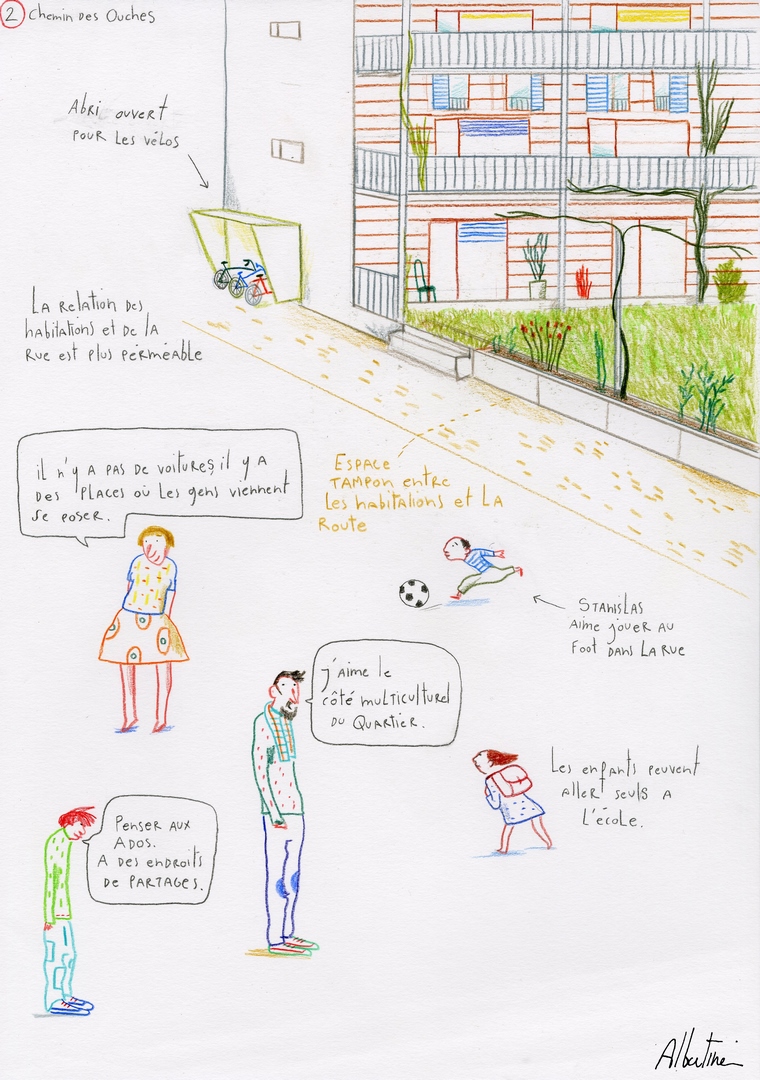 2 Chemin des Ouches
Abri ouvert
pour les vélos
La relation des
habitations et de la
rue est plus perméable
il n'y a pas de voitures, il y a
des places où les gens viennent
se poser.
Espace
tampon entre
les habitations et la
route
Stanislas
aime jouer au
foot dans la rue
j'aime le
côté multiculturel
du quartier.
Les enfants peuvent
aller seuls a
l'école.
Penser aux
ados.
A des endroits
de partages.
Albertine